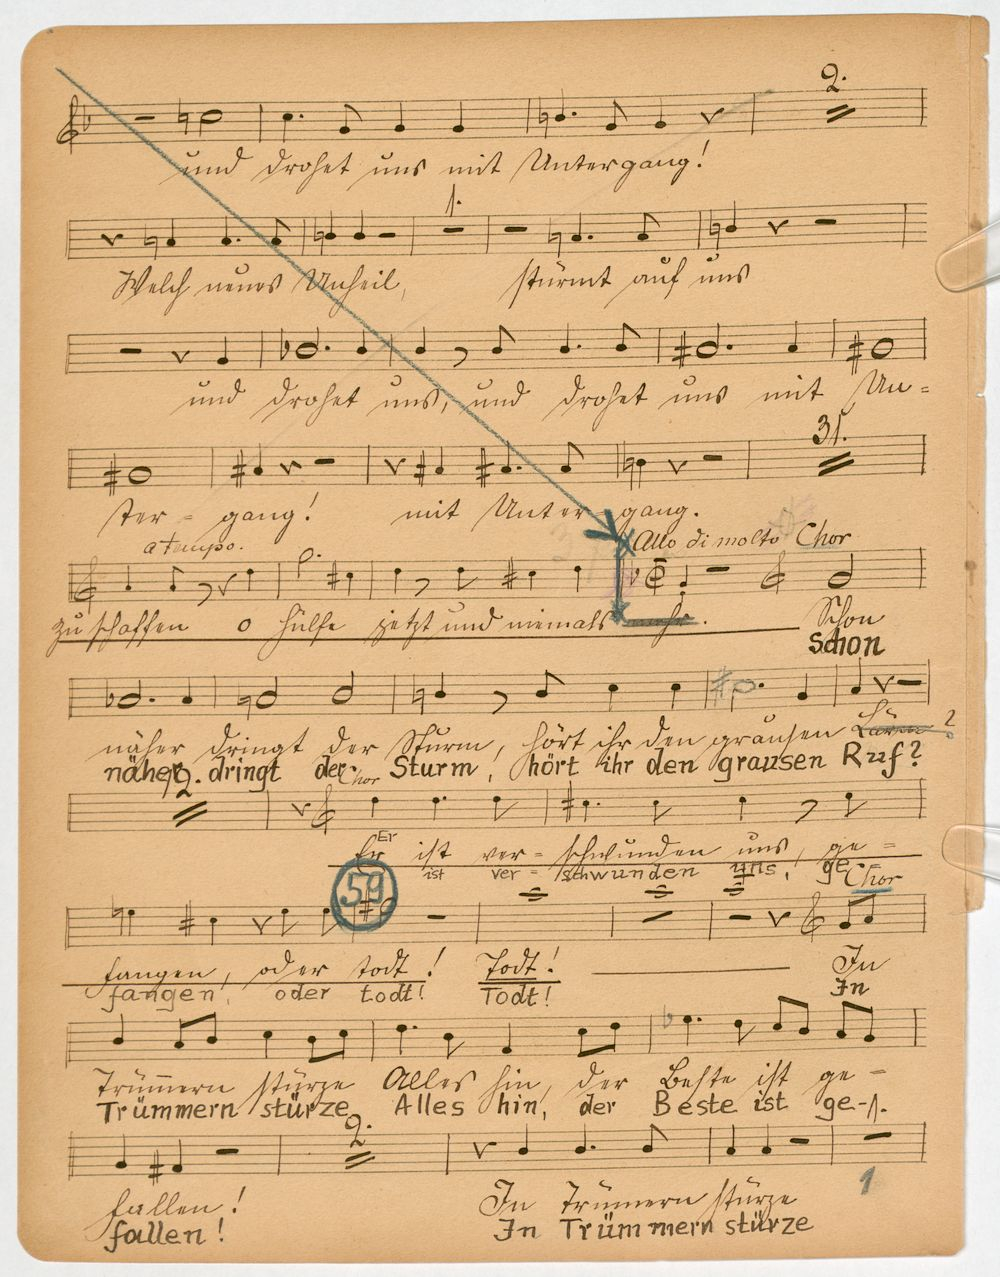 2.
und drohet uns mit Untergang!
1.
Welch neues Unheil, stürmt auf uns
und drohet uns, und drohet uns mit Un=
31.
ter= gang! mit Unter= gang.
a tempo. Allo di molto Chor
zu schaffen o Hülfe jetzt und niemals mehr. Schon
Schon
näher dringt der Sturm, hört ihr den grausen Lärm?
näher dringt der Sturm, hört ihr den grausen Ruf?
2. Chor
Er ist ver= schwunden uns, ge=
Er ist ver- schwunden uns, ge
59 Chor
fangen, oder todt! Todt! In
fangen, oder todt! Todt! In
Trümmern stürze Alles hin, der Beste ist ge=
Trümmern stürze Alles hin, der Beste ist ge-
2. 1.
fallen! In Trümmern stürze
fallen! In Trümmern stürze
1